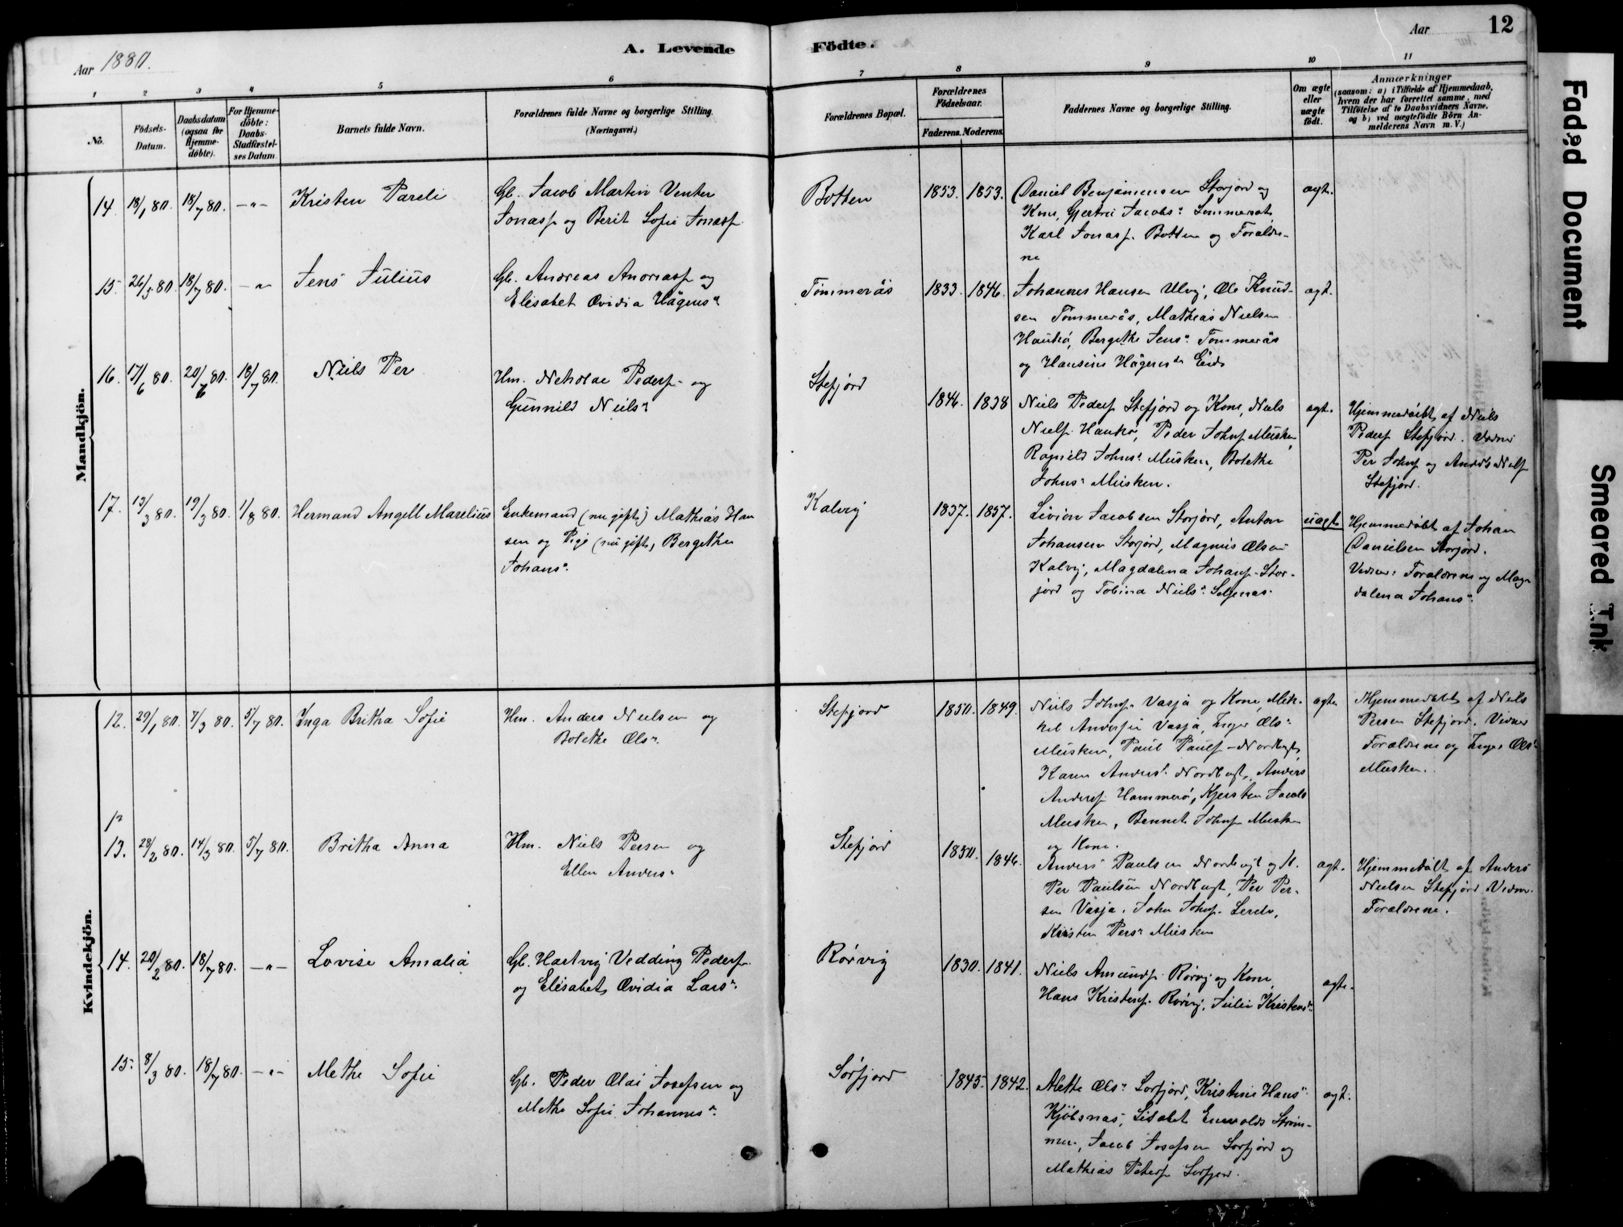 Aar 1880.
A. Levende
Födte.
Aar
12
1 2 3 4 5 6 7 8 9 10 11
No.
Födsels-
Datum.
Daabsdatum
(ogsaa for
Hjemme-
döbte).
For Hjemme-
döbte:
Daabs-
Stadfæstel-
ses Datum
Barnets fulde Navn.
Forældrenes fulde Navne og borgerlige Stilling.
(Næringsvei.)
Forældrenes Bopæl.
Forældrenes
Födselsaar.
Faderens. Moderens.
Faddernes Navne og borgerlige Stilling.
Om ægte
eller
uægte
født.
Anmærkninger
(saasom: a) i Tilfælde af Hjemmedaab,
hvem der har forrettet samme, med
Tilföielse af to Daabsvidners Navne,
og b) ved uægtefödte Börn An-
melderens Navn m. V.)
Mandkjön.
14. 18/1 80. 18/7 80. -"- Kristen Pareli
Gb. Jacob Martin Venter
Jonass. og Berit Sofie Jonasd.
Botten
1853. 1853.
Daniel Benjaminsen Storjord og
Kone, Gjertru Jacobs
Karl Jonass. Botten og Foræld-
ne
agt.
15. 26/5 80. 18/7 80. -"- Jens Julius
Gb. Andreas Andreass. og
Elisabet Ovidia Hågens
Tømmerås
1833. 1846.
Johannes Hansen Ulvg, Ole Knud-
sen Tømmerås, Mathias Nielsen
Haukø, Bergithe Jens Tømmerås
og Hansine Hågens Eide
agt.
16. 17/6 80. 20/6 80. 18/7 80. Niels Per
Hm. Nikolai Peders. og
Gunnild Niels
Stefjord
1846. 1838
Niels Peders. Stefjord og Kone, Niels
Niels. Haukø, Peder Johns. Musken,
Ragnild Johns Musken, Bolethe
Johns Musken.
agt.
Hjemmedøbt af Niels
Peders. Stefjord. Vidner
Per Johns. og Anders Niels.
Stefjord.
17. 13/3 80. 19/3 80. 1/8 80. Hermand Angell Marelius
Enkemand (nu gift) Mathias Han
sen og Pige (nu gift) Bergithe
Johans
Kalvig
1837. 1857.
Livion Jacobsen Storjord, Anton
Johansen Storjord, Magnus Olsen
Kalvig, Magdalena Johans. Stor-
jord og Tobina Niels
uagt
Hjemmedøbt af Johan
Danielsen Storjord.
Vidner: Forældrene og Mag
dalena Johans
Kvindekjön.
12. 29/1 80. 7/3 80. 5/7 80. Inga Britha Sofie
Hm. Anders Nielsen og
Bolethe Ols
Stefjord
1850. 1849.
Niels Johns. Vasja og Kone, Mik-
kel Anders. Vasja, Inger Ols
Musken, Paul Pauls. Nordbugt,
Karen Anders Nordbugt, Anders
Anders. Hammerø, Kjersten Jacobs
Musken, Bennet Johns. Musken
og Kone.
agt.
Hjemmedøbt af Niels
Persen Stefjord. Vidner
Forældrene og Inger Ols
Musken.
13. 28/2 80. 14/3 80. 5/7 80. Britha Anna
Hm. Niels Persen og
Ellen Anders
Stefjord
1850. 1846.
Anders Paulsen Nordbugt og K.
Per Paulsen Nordbugt, Per Per-
sen Vasja, John Johns.
Kirsten Pers Musken
agt.
Hjemmedøbt af Anders
Nielsen Stefjord. Vidner
Forældrene.
14. 20/2 80. 18/7 80. -"- Lovise Amalia
Gb. Hartvig Vedding Peders.
og Elisabet Ovidia Lars
Rørvig
1830. 1841.
Niels Amunds. Rørvig og Kone,
Hans Kristens. Rørvig, Julie Kristens
agt.
15. 8/3 80. 18/7 80. -"- Methe Sofie
Gb. Peder Olai Josefsen og
Methe Sofie Johannes
Sørfjord
1845. 1842.
Alette Ols Sørfjord, Kristine Hans
Kjøbsnas, Lisabet
Jacob Josefsen Sørfjord og
Mathias Peders. Sørfjord.
agt.
Faded Document
Smeared Ink